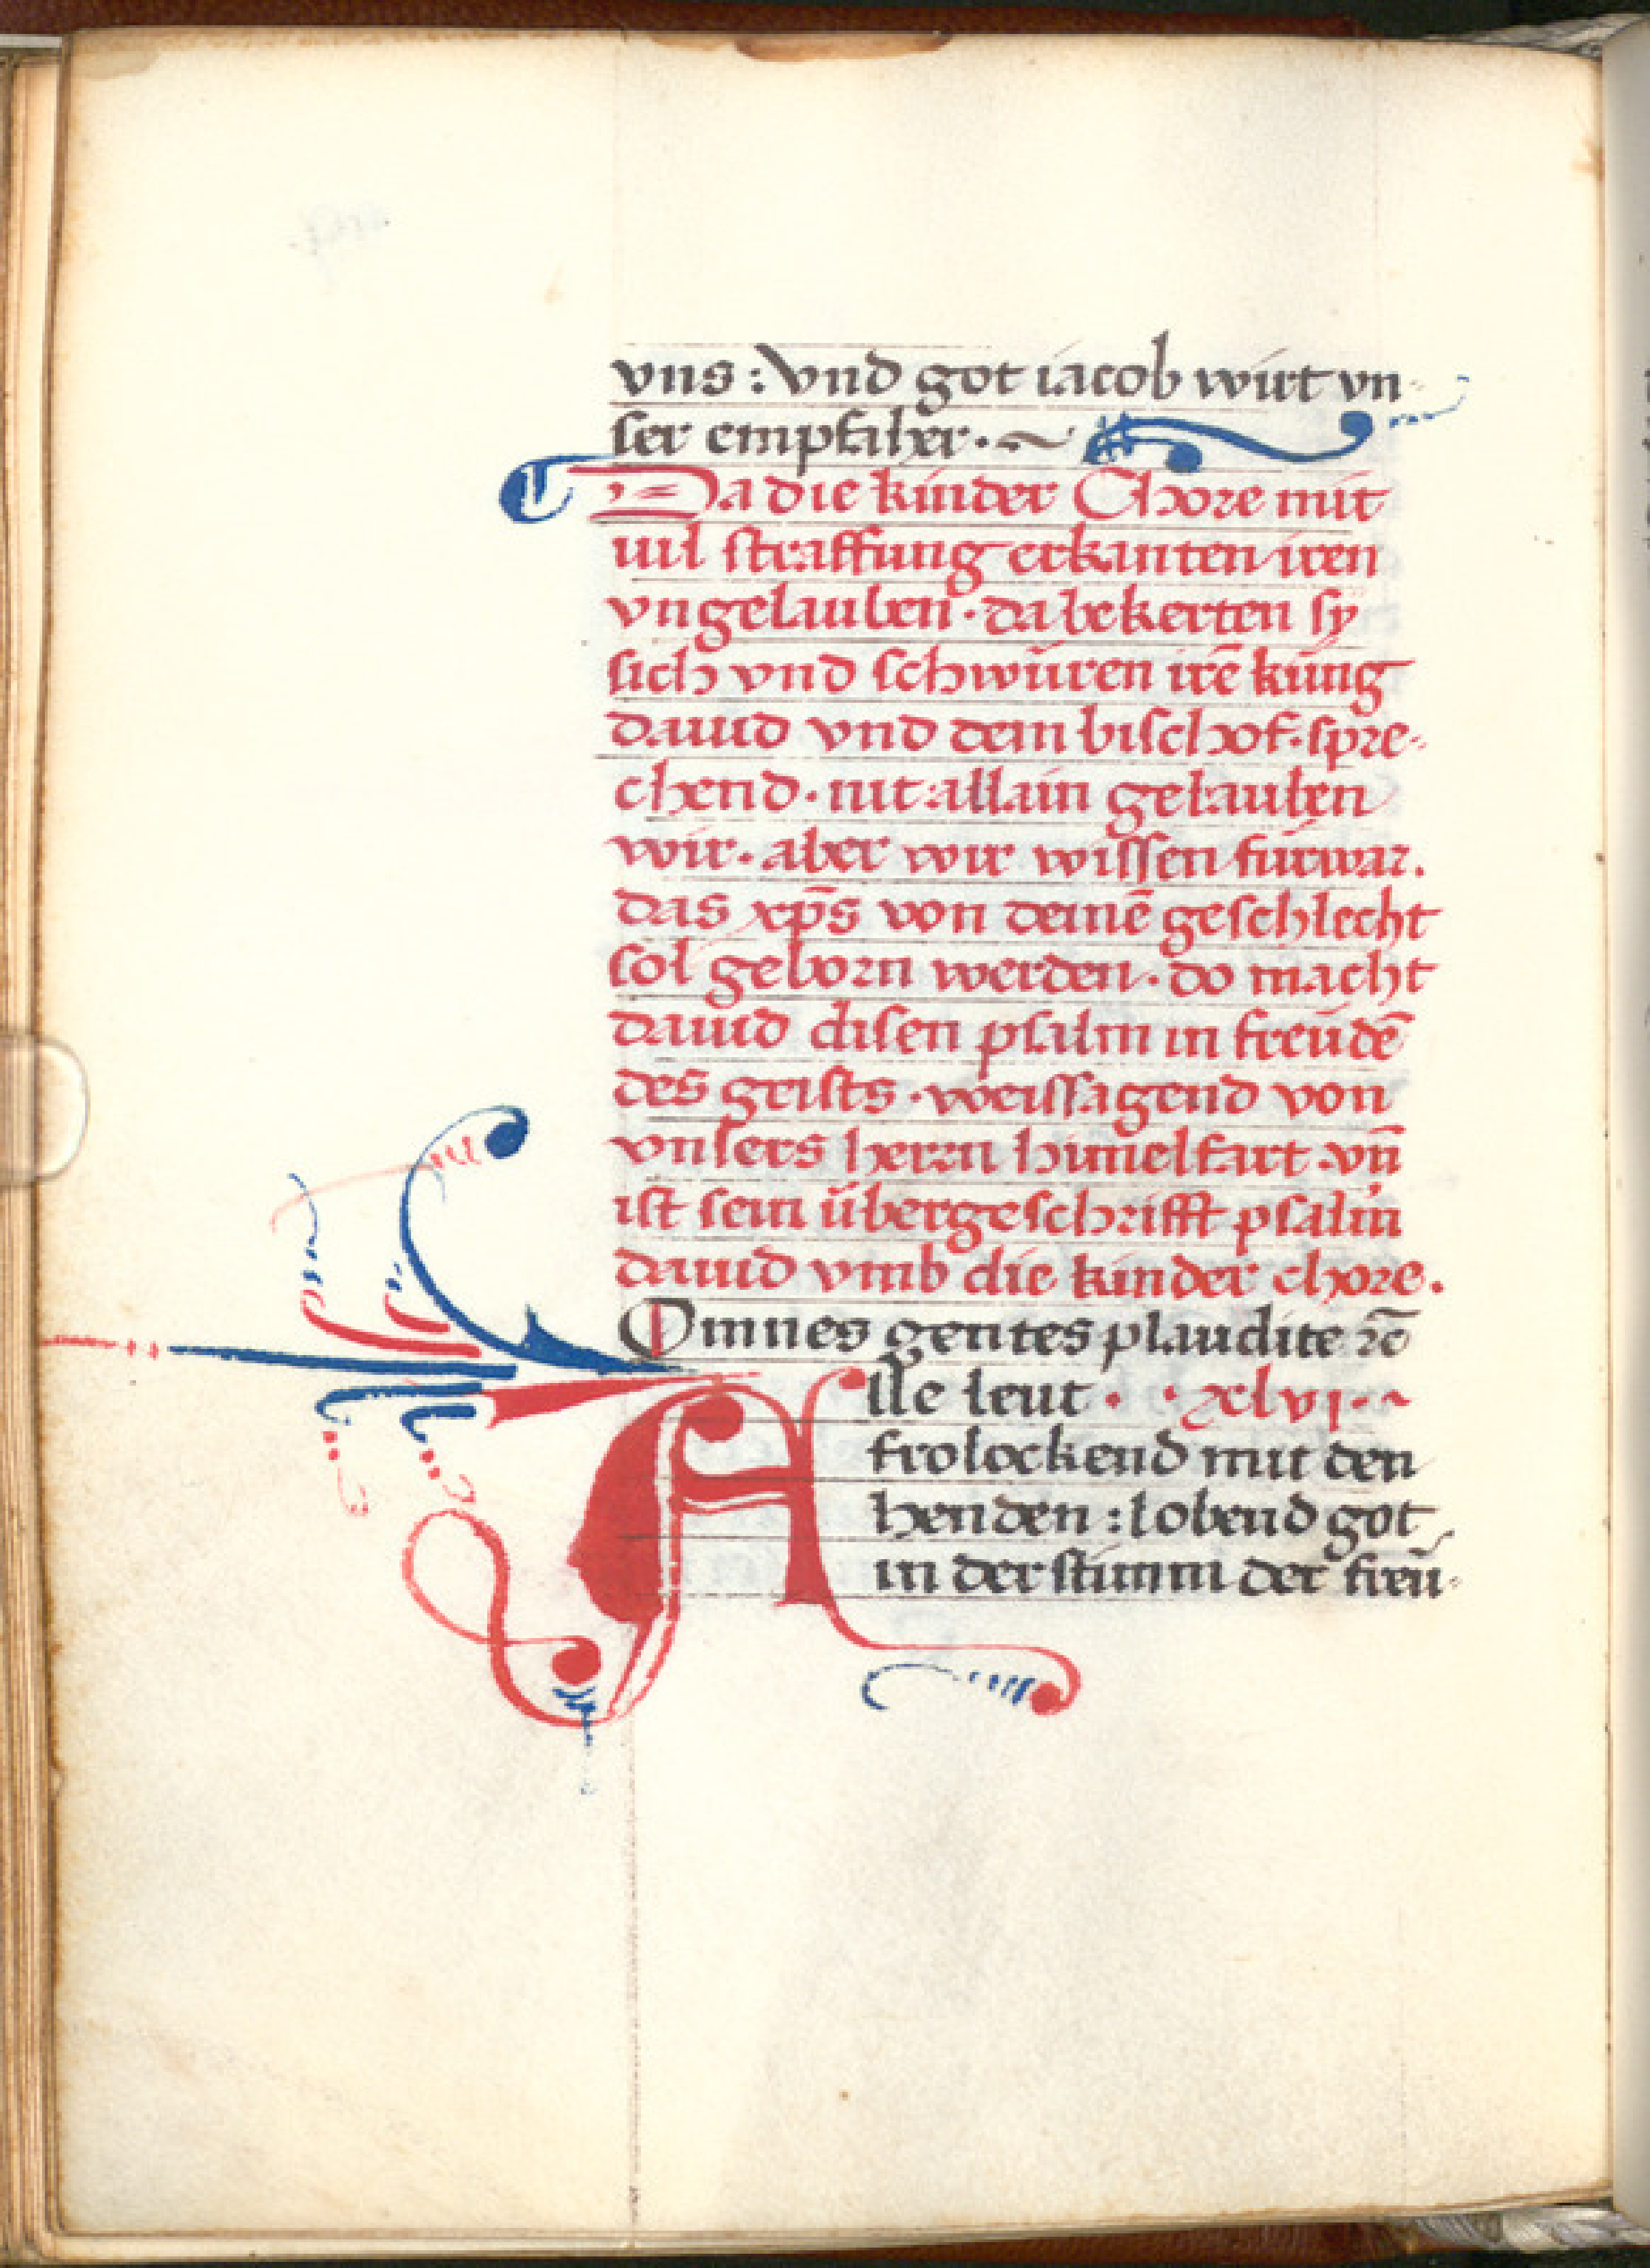 vns : Vnd got iacob wirt vn-
ser empfaher · ~
Da die kinder Chore mit
uil straffung erkanten iren
vngelauben · da bekerten sy
sich vnd schwůren irē kůng
dauid vnd dem bischof · spre-
chend · nit allain gelauben
wir · aber wir wissen fúrwar .
das xp̄s von deinē geschlecht
sol geborn werden · do macht
dauid disen psalm in freúdē
des geists · weissagend von
vnsers herrn himelfart · vn̄
ist sein úbergeschrifft psalm
dauid vmb die kinder chore .
Omnes gentes plaudite ꝛc̄
Alle leut · · xlvj · ~
frolockend mit den
henden : lobend got
in der stimm der freú-